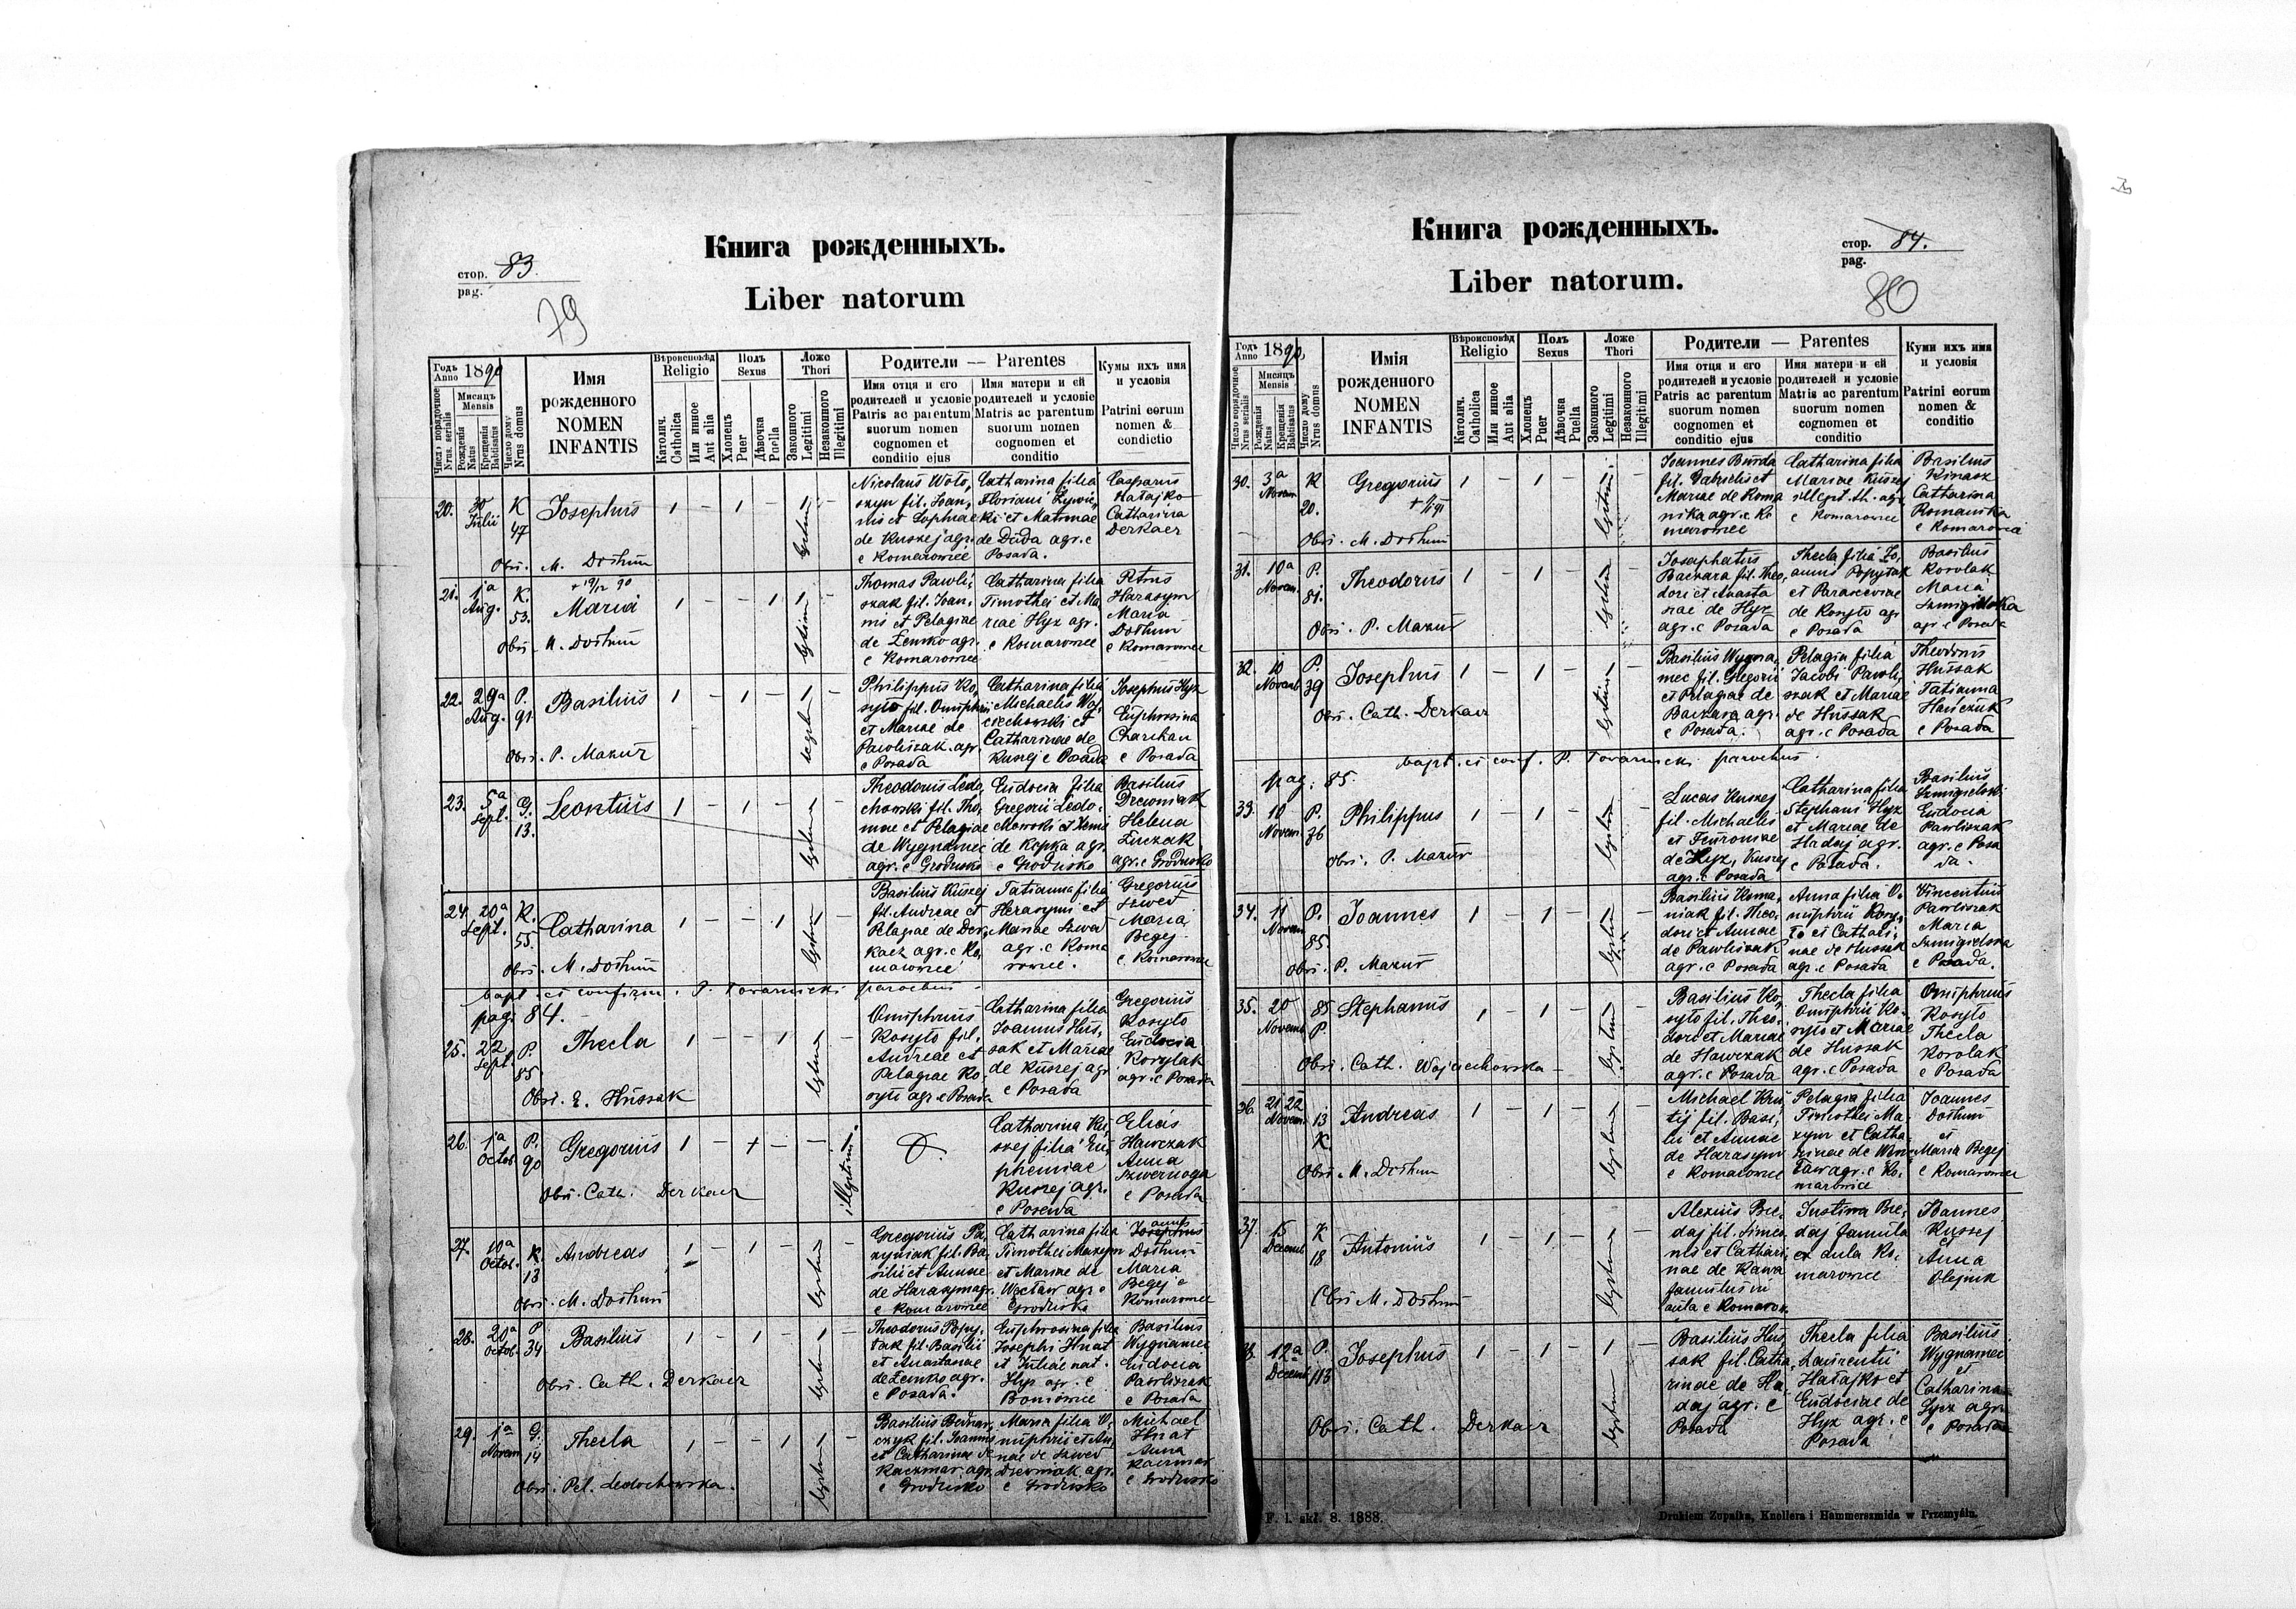 Книга рожденныхъ.
стор. 83.
pag.
Liber natorum
79
Годъ Anno 1890
Число порядочное Nrus. serialis
Мисяцъ Mensis
Рожденія Natus
Крещенія Babtisatus
Число дому Nrus domus
Имя рожденного
NOMEN INFANTIS
Вѣроисповѣд Religio
Католич. Catholica
Или инное Aut alia
Полъ Sexus
Хлопецъ Puer
Дѣвочка Puella
Ложе Thori
Законного Legitimi
Незаконного Illegitimi
Родители — Parentes
Имя отця и его родителей и условіе
Patris ac parentum suorum nomen cognomen et conditio ejus
Имя матери и ей родителей и условіе
Matris ac parentum suorum nomen cognomen et conditio
Кумы ихъ имя и условія
Patrini eorum nomen & condictio
20. 30 Julii K 47 Josephus 1 – 1 – 1 –
Nicolaus Woło,
szyn fil. Joan,
nis et Sophiae
de Kuszej agr.
e Komarowice
Catharina filia
Floriani Żywic,
ki et Matronae
de Duda agr. e
Posada.
Casparus
Hatajko
Catharina
Derkacz
Obs. M. Dozhun
21. 1a Aug. K. 53. + 19/12 90 Maria 1 – – 1 1 –
Thomas Pawli,
szak fil. Joan,
nis et Pelagiae
de Lemko agr.
e Komarowice
Catharina filia
Timothei et Ma,
riae Hyz agr.
e Komarowice
Petrus
Harasym
Maria
Dozhun
e Komarowice
Obs. M. Dozhun
22. 29a Aug. P. 91. Basilius 1 – 1 – 1 –
Philippus Ko,
syto fil. Onuphrii
et Mariae de
Pawliszak agr.
e Posada
Catharina filia
Michaelis Woj,
ciechowski et
Catharinae de
Kuszej e Posada
Josephus Hyz
Euphrosina
e Posada
Obs. P. Mazur
23. 5a Sept. G. 13. Leontius 1 – 1 –
Theodorus Ledo,
chowski fil. Tho,
mae et Pelagiae
de Wygnaniec
agr. e Grodzisko
Eudocia filia
Gregorii Ledo,
de Kopka agr.
e Grodzisko
Basilius
Drewniak
Helena
Luczak
agr. e Grodzisko
24. 20a Sept. K. 55. Catharina 1 – – 1
Basilius Kuszej
fil. Andreae et
Pelagiae de Der,
kacz agr. e Ko,
marowice
Tatianna filia
Herasymi et
Mariae Szwed
agr. e Koma
rowice.
Gregorius
Szwed
Maria
Begej
e Komarowice
Obs. M. Dozhun
bapt. et confirm. P. Towarnicki parochus
pag. 84.
25. 22 Sept. P. 85 Thecla 1 – – 1 1 –
Onuphrius
Kosyto fil.
Andreae et
Pelagiae Ko,
syto agr. e Posada
Catharina filia
Joannis Hus,
sak et Mariae
de Kuszej agr
e Posada
Gregorius
Kosyto
Eudocia
Korolak
agr. e Posada
Obs. E. Hussak
26. 1a Octob. P. 90 Gregorius 1 – 1 – –
Catharina Ku,
szej filia Eu,
phemiae
Kuszej agr.
e Posada
Elias
Hawczak
Anna
e Posada
Obs. Cath. Derkacz
27. 10a Octob. K 13 Andreas 1 – 1 – 1 –
Gregorius Pa,
silii et Annae
de Harasym agr.
e Komarowice
Catharina filia
Timothei Mazym
et Mariae de
Wocław agr. e
Grodzisko
Josephus
Dozhun
Maria
Begej e
Komarowice
Obs. M. Dozhun
28. 20a Octob. P 34 Basilius 1 – 1 – 1 –
Theodorus Popy,
tak fil. Basilii
et Anastasiae
de Lemko agr.
e Posada.
Euphrosina filia
Josephi Hnat
et Juliae nat.
Hyz agr. e
Boniowice
Basilius
Wygnaniec
Eudocia
Pawliszak
e Posada
Obs. Cath. Derkacz
29. 1a Novem. G. 14 Thecla 1 – – 1 1 –
Basilius Bednar,
czyk fil. Joannis
et Catharinae de
Kaczmar agr.
e Grodzisko
Maria filia O,
nuphrii et An,
nae de Szwed
Drewniak agr.
e Grodzisko
Michael
Hnat
Anna
Kaczmar
e Grodzisko
Obs. Pel. Ledochowska.
Книга рожденныхъ.
стор. 84.
pag.
Liber natorum.
80
Годъ Anno 1890.
Число порядочное Nrus serialis
Мисяцъ Mensis
Рожденія Natus
Крещенія Babtisatus
Число дому Nrus domus
Имія рожденного
NOMEN INFANTIS
Вѣроисповѣд Religio
Католич. Catholica
Или инное Aut alia
Полъ Sexus
Хлопецъ Puer
Дѣвочка Puella
Ложе Thori
Законного Legitimi
Незаконного Illegitimi
Родители — Parentes
Имя отця и его родителей и условіе
Patris ac parentum suorum nomen cognomen et conditio ejus
Имя матери и ей родителей и условіе
Matris ac parentum suorum nomen cognomen et conditio
Куми ихъ имя и условія
Patrini eorum nomen & conditio
30. 3a Novem K 20. Gregorius 1 – 1 –
Joannes Burda
fil. Gabrielis et
Mariae de Roma
nika agr. e Ko
marowice
Catharina filia
Mariae Kuszej
illegit. th. agr.
e Komarowice
Basilius
Kinasz
Catharina
Romanika
e Komarowice
Obs. M. Dozhun
31. 10a Novem. P. 81. Theodorus 1 – 1 –
Josaphatus
Baczara fil. Theo,
dori et Anasta
siae de Hyz
agr. e Posada
Thecla filia Jo,
annis Popytak
et Parasceviae
de Kosyto agr
e Posada
Basilius
Korolak
Maria
Szmigielska
agr e Posada
Obs. P. Mazur
32. 10 Novemb P. 39 Josephus 1 – 1 –
Basilius Wygna,
niec fil. Gregorii
et Pelagiae de
Baczara agr.
e Posada.
Pelagia filia
Jacobi Pawli,
szak et Mariae
de Hussak
agr. e Posada
Theodorus
Hussak
Tatianna
Hawczak
e Posada
Obs. Cath. Derkacz
bapt. et conf. P. Towarnicki parochus
pag: 85.
33. 10 Novem. P. 36 Philippus 1 – 1 –
Lucas Kuszej
fil. Michaelis
et Feuroniae
de Hyz, Kuszej
agr. e Posada
Catharina filia
Stephani Hyz
et Mariae de
Hadaj agr.
e Posada.
Basilius
Szmigielski
Eudocia
Pawliszak
agr. e Posa
da.
Obs. P. Mazur
34. 11 Novem P. 85. Joannes 1 – 1 –
Basilius Roma,
niak fil. Theo,
dori et Annae
de Pawliszak
agr. e Posada
Anna filia O,
nuphrii Kosy,
to et Cathari,
nae de Hussak
agr. e Posada
Vincentius
Pawliszak
Maria
Szmigielska
e Posada.
Obs. P. Mazur
35. 20 Novemb 85 P. Stephanus 1 – 1 –
Basilius Ko,
syto fil. Theo,
dori et Mariae
de Hawczak
agr. e Posada
Thecla filia
Onuphrii Ko,
syto et Mariae
de Hussak
agr. e Posada
Onuphrius
Kosyto
Thecla
Korolak
e Posada
Obs. Cath. Wojciechowska
36. 21 22 Novem. 13 K Andreas 1 – 1 –
Michael Kru
tij fil. Basi,
lii et Annae
de Harasym
e Komarowice
Pelagia filia
Timothei Ma
zym et Catha,
rinae de
agr. e Ko,
marowice
Joannes
Dozhun
et
Maria Begej
e Komarowice
Obs. M. Dozhun
37. 15 Decemb K 18 Antonius 1 – 1 –
Alexius Bre,
daj fil. Simeo,
nis et Cathari,
nae de Kawa
famulus in
aula e Komarow.
Justina Bre,
daj famula
ex aula Ko,
marowice
Joannes
Kuszej
et
Anna
Olejnik
Obs M. Dozhun
38. 12a Decemb P. 113 Josephus 1 – 1 – 1 –
Basilius Hus,
sak fil. Catha,
rinae de Ha,
daj agr. e
Posada
Thecla filia
Laurentii
Hatajko et
Eudociae de
Hyz agr. e
Posada
Basilius
Wygnaniec
et
Catharina
Hyz agr.
e Posada
Obs. Cath. Derkacz
F. l. skł. 8. 1888.
Drukiem Żupnika, Knollera i Hammerszmida w Przemyślu.